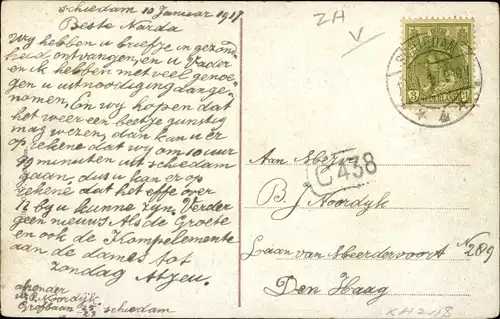 Schiedam 10 Januar 1917
Beste Narda
Wy hebben u briefje in gezond
heid ontvangen, en u Vader
en ik hebben met veel genoe
gen u uitnoodiging dange
nomen, En wy hopen dat
het weer een beetje gunstig
mag wezen, dan kan u er
op rekene dat wy om 10 uur
99 minuten uit schiedam
gaan, dus u kan er op
rekene dat het effe over
12 by u kunne zyn. Verder
geen nieuws Als de Groete
en ook de Komplemente
aan de dames tot
zondag Atjeu.
afzender
Noordijk
schiedam
ZH
V
SCHIEDAM
3
NEDERLAND
C 438
Aan Mbejvr
B. J Noordyk
Laan van Meerdervoort N 289
Den Haag
XH2118